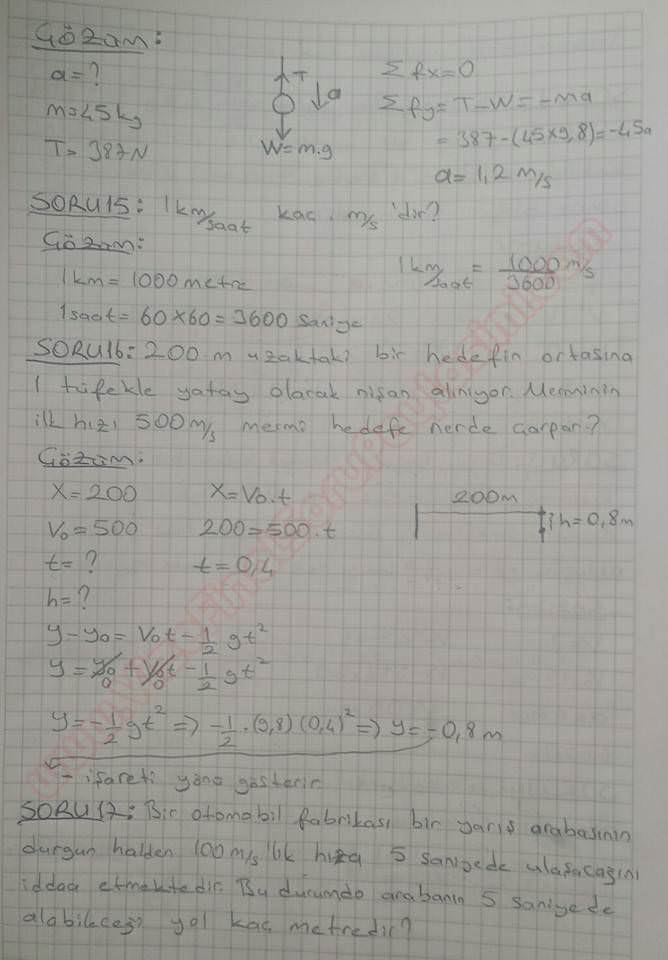 Çözüm:
a=?
m=45 kg
T=387N
T
a
W=m.g
Σfx=0
Σfy=T-W=-ma
=387-(45x9,8)=-45a
a=1,2 m/s
SORU15: 1 km/saat kaç m/s 'dir?
Çözüm:
1km=1000 metre
1saat=60x60=3600 saniye
1 km/saat = 1000/3600 m/s
SORU16: 200 m uzaktaki bir hedefin ortasına
1 tüfekle yatay olacak nişan alınıyor. Merminin
ilk hızı 500 m/s mermi hedefe nerde çarpar?
Çözüm:
X=200 X=V0.t
V0=500 200=500.t
t=? t=0,4
h=?
200m
h=0,8m
y-y0=V0t-1/2 gt²
y=y0+V0t-1/2 gt²
0 0
y=-1/2 gt² => -1/2.(9,8)(0,4)² => y=-0,8 m
- işareti yönü gösterir
SORU17: Bir otomobil fabrikası bir yarış arabasının
durgun halden 100 m/s lik hıza 5 saniyede ulaşacağını
iddaa etmektedir. Bu durumda arabanın 5 saniyede
alabileceği yol kaç metredir?